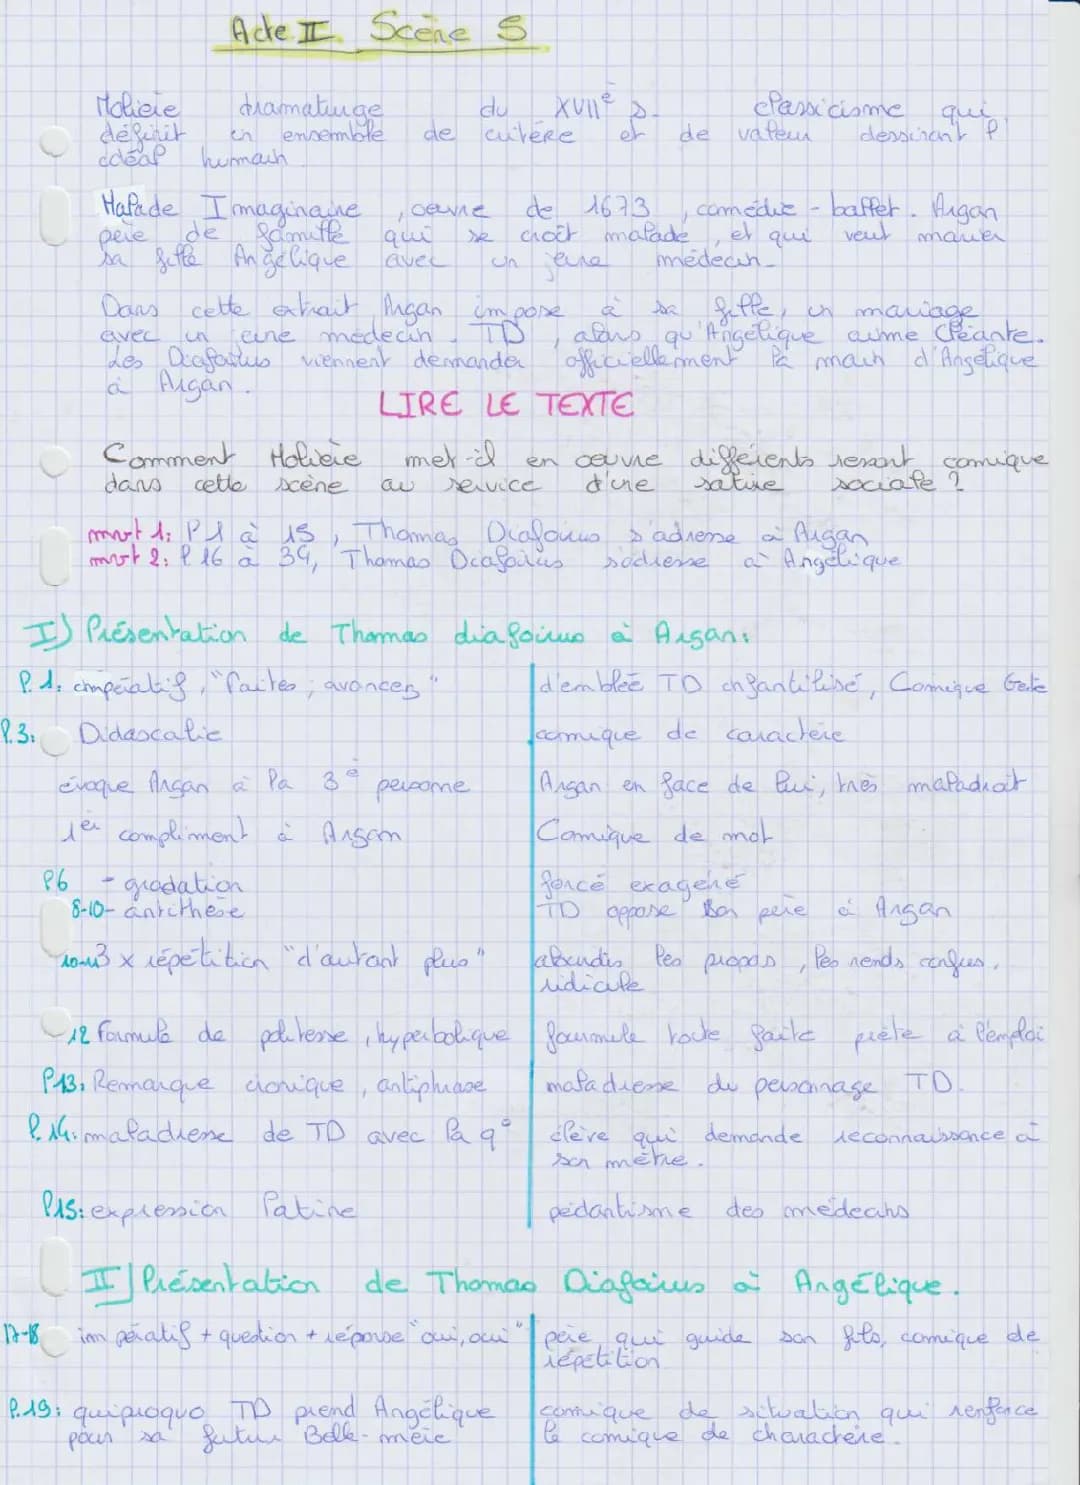 Acte II Scène 5
Molière dramaturge du XVIIe s. classicisme qui
définit un ensemble de critère et de valeur dessinant l'
idéal humain.
Malade Imaginaire, oeuvre de 1673, comédie-ballet. Argan
père de famille qui se croit malade, et qui veut marier
sa fille Angélique avec un jeune médecin.
Dans cette extrait Argan impose à sa fille, un mariage
avec un jeune médecin. TD, alors qu'Angélique aime Cléante.
Les Diafoirus viennent demander officiellement la main d'Angélique
à Argan.
LIRE LE TEXTE
Comment Molière met-il en oeuvre différents ressort comique
dans cette scène au service d'une satire sociale ?
mvt 1: l 1 à 15, Thomas Diafoirus s'adresse à Argan
mvt 2: l. 16 à 34, Thomas Diafoirus s'adresse à Angélique
I) Présentation de Thomas diafoirus à Argan:
l. 1: impératif, "faites, avancez"
d'emblée TD infantilisé, Comique Geste
l.3: Didascalie
comique de caractère
évoque Argan à la 3e personne
Argan en face de lui, très maladroit
1er compliment à Argan
Comique de mot
l6 - gradation
forcé exagéré
8-10- antithèse
TD oppose son père à Argan
10-13 3 x répétition "d'autant plus"
alourdis les propos, les rends confus,
ridicule
12 Formule de politesse, hyperbolique
fourmule toute faite prête à l'emploi
l13: Remarque ironique, antiphrase
maladresse du personnage TD.
l.14: maladresse de TD avec la q°
élève qui demande reconnaissance à
son mètre.
l15: expression latine
pédantisme des médecins
II) Présentation de Thomas Diafoirus à Angélique.
17-18 impératif + question + réponse "oui, oui"
père qui guide son fils, comique de
répétition
l.19: quiproquo TD prend Angélique
pour sa future Belle-mère
comique de situation qui renforce
le comique de charactère.